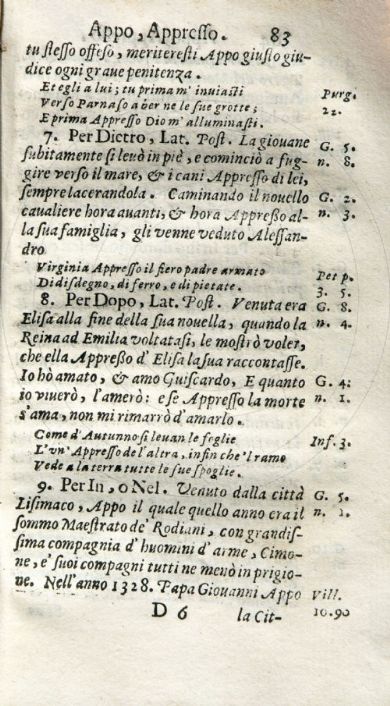 Appo, Appresso. 83
tu stesso offeso, meriteresti Appo giusto giu-
dice ogni graue penitenza.
Et egli a lui; tu prima m' inuiasti Purg.
Verso Parnaso a ber ne le sue grotte; 22.
E prima Appresso Dio m' alluminasti.
7. Per Dietro, Lat. Post. La giouane G. 5.
subitamente si leuò in piè, e cominciò a fug- n. 8.
gire verso il mare, & i cani Appresso di lei,
sempre lacerandola. Caminando il nouello G. 2.
caualiere hora auanti, & hora Appresso al- n. 3.
la sua famiglia, gli venne veduto Alessan-
dro
Virginia Appresso il fiero padre armato Pet p.
Di disdegno, di ferro, e di pietate. 3. 5.
8. Per Dopo, Lat. Post. Venuta era G. 8.
Elisa alla fine della sua nouella, quando la n. 4.
Reina ad Emilia voltatasi, le mostrò voler,
che ella Appresso d' Elisa la sua raccontasse.
Io hò amato, & amo Guiscardo, E quanto G. 4:
io viuerò, l'amerò: e se Appresso la morte n. 1.
s'ama, non mi rimarrò d'amarlo.
Come d' Autunno si leuan le foglie Inf. 3.
L'vn' Appresso del'altra, infin che'l ramo
Vede a la terra tutte le sue spoglie.
9. Per In, o Nel. Venuto dalla città G. 5.
Lisimaco, Appo il quale quello anno era il n. 1.
sommo Maestrato de' Rodiani, con grandis-
sima compagnia d' huomini d' arme, Cimo-
ne, e' suoi compagni tutti ne menò in prigio-
ne. Nell'anno 1328. Papa Giouanni Appo Vill.
D 6 la Cit- 10.90